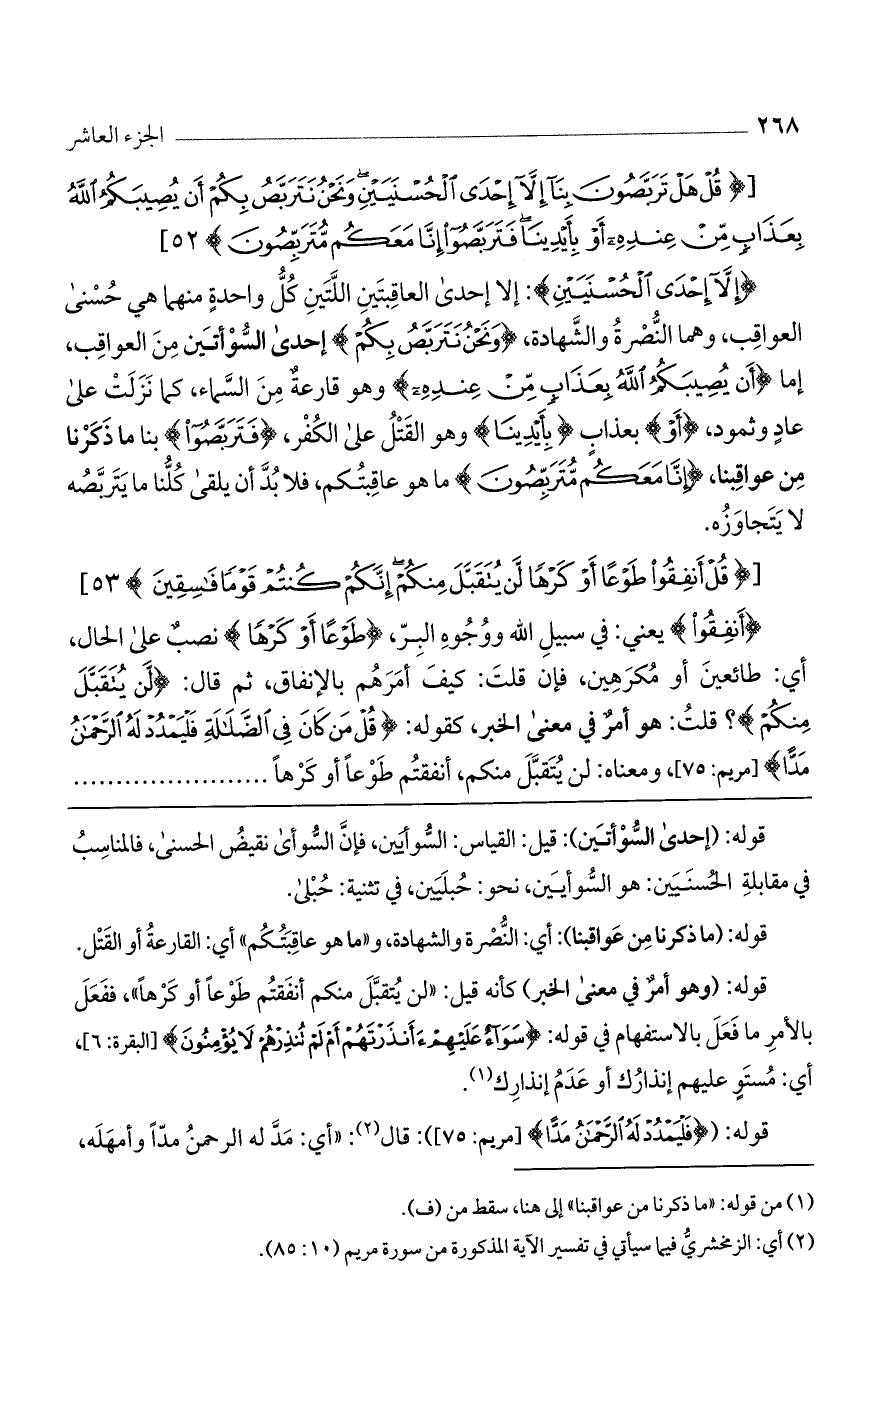 ٢٦٨ الجزء العاشر
[﴿ قُلْ هَلْ تَرَبَّصُونَ بِنَآ إِلَّآ إِحْدَى ٱلْحُسْنَيَيْنِ ۖ وَنَحْنُ نَتَرَبَّصُ بِكُمْ أَن يُصِيبَكُمُ ٱللَّهُ
بِعَذَابٍ مِّنْ عِندِهِۦٓ أَوْ بِأَيْدِينَا ۖ فَتَرَبَّصُوٓا۟ إِنَّا مَعَكُم مُّتَرَبِّصُونَ ﴾ ٥٢]
﴿إِلَّآ إِحْدَى ٱلْحُسْنَيَيْنِ﴾: إلا إحدىٰ العاقِبتَينِ اللَّتَينِ كُلُّ واحدةٍ منهما هي حُسْنىٰ
العواقِب، وهما النُّصْرةُ والشَّهادة، ﴿وَنَحْنُ نَتَرَبَّصُ بِكُمْ ﴾ إحدىٰ السُّوْأتَين مِنَ العواقِب،
إما ﴿أَن يُصِيبَكُمُ ٱللَّهُ بِعَذَابٍ مِّنْ عِندِهِۦٓ ﴾ وهو قارعةٌ مِنَ السَّماء، كما نَزَلَتْ علىٰ
عادٍ وثمود، ﴿أَوْ﴾ بعذابٍ ﴿ بِأَيْدِينَا﴾ وهو القَتْلُ علىٰ الكُفْر، ﴿فَتَرَبَّصُوٓا۟ ﴾ بنا ما ذَكَرْنا
مِن عواقِبنا، ﴿إِنَّا مَعَكُم مُّتَرَبِّصُونَ ﴾ ما هو عاقِبتُكم، فلا بُدَّ أن يلقىٰ كُلُّنا ما يَتَربَّصُه
لا يَتَجاوَزُه.
[﴿ قُلْ أَنفِقُوا۟ طَوْعًا أَوْ كَرْهًا لَّن يُتَقَبَّلَ مِنكُمْ ۖ إِنَّكُمْ كُنتُمْ قَوْمًا فَـٰسِقِينَ ﴾ ٥٣]
﴿أَنفِقُوا۟ ﴾ يعني: في سبيلِ الله ووُجُوهِ البِرّ، ﴿طَوْعًا أَوْ كَرْهًا ﴾ نصبٌ علىٰ الحال،
أي: طائعينَ أو مُكرَهِين، فإن قلتَ: كيفَ أمَرَهُم بالإنفاق، ثم قال: ﴿لَّن يُتَقَبَّلَ
مِنكُمْ ﴾؟ قلتُ: هو أمرٌ في معنىٰ الخبر، كقوله: ﴿ قُلْ مَن كَانَ فِى ٱلضَّلَـٰلَةِ فَلْيَمْدُدْ لَهُ ٱلرَّحْمَـٰنُ
مَدًّا﴾ [مريم: ٧٥]، ومعناه: لن يُتَقبَّلَ منكم، أنفقتُم طَوْعاً أو كَرْهاً ......................
قوله: (إحدىٰ السُّوْأتَين): قيل: القياس: السُّوأيَين، فإنَّ السُّوأىٰ نقيضُ الحسنىٰ، فالمناسِبُ
في مقابلةِ الحُسنَيَين: هو السُّوأيَـين، نحو: حُبلَيَين، في تثنية: حُبْلىٰ.
قوله: (ما ذكرنا مِن عَواقبنا): أي: النُّصْرة والشهادة، و«ما هو عاقِبَتُكُم» أي: القارعةُ أو القَتْل.
قوله: (وهو أمرٌ في معنىٰ الخبر) كأنه قيل: «لن يُتقبَّلَ منكم أنفَقتُم طَوْعاً أو كَرْهاً»، ففَعَلَ
بالأمرِ ما فَعَلَ بالاستفهام في قوله: ﴿سَوَآءٌ عَلَيْهِمْ ءَأَنذَرْتَهُمْ أَمْ لَمْ تُنذِرْهُمْ لَا يُؤْمِنُونَ ﴾ [البقرة: ٦]،
أي: مُستَوٍ عليهم إنذارُك أو عَدَمُ إنذارِك(١).
قوله: (﴿فَلْيَمْدُدْ لَهُ ٱلرَّحْمَـٰنُ مَدًّا﴾ [مريم: ٧٥]): قال(٢): «أي: مَدَّ له الرحمنُ مدّاً وأمهَلَه،
(١) من قوله: «ما ذكرنا من عواقبنا» إلى هنا، سقط من (ف).
(٢) أي: الزمخشريُّ فيما سيأتي في تفسير الآية المذكورة من سورة مريم (١٠: ٨٥).